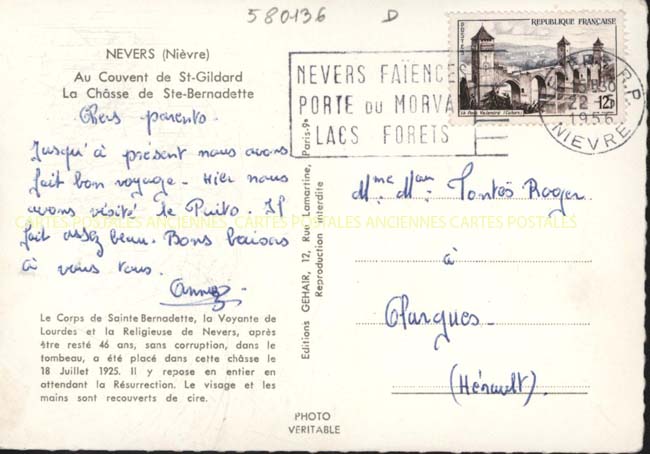 580136 D
NEVERS (Nièvre)
Au Couvent de St-Gildard
La Châsse de Ste-Bernadette
Chers parents.
Jusqu'à présent nous avons
fait bon voyage. Hier nous
avons visité le Puits. Il
fait assez beau. Bons baisers
à vous tous.
Le Corps de Sainte Bernadette, la Voyante de
Lourdes et la Religieuse de Nevers, après
être resté 46 ans, sans corruption, dans le
tombeau, a été placé dans cette châsse le
18 Juillet 1925. Il y repose en entier en
attendant la Résurrection. Le visage et les
mains sont recouverts de cire.
Editions GEHAIR, 12, Rue Lamartine, Paris-9e
Reproduction interdite
PHOTO
VERITABLE
NEVERS FAÏENCES
PORTE DU MORVA
LACS FORETS
REPUBLIQUE FRANÇAISE
POSTES
12F
Le Pont Valentré (Cahors)
R.P
22
1956
NIEVRE
Mme Mr Tontès Roger
à
Olargues.
(Hérault).
CARTES POSTALES ANCIENNES CARTES POSTALES ANCIENNES CARTES POSTALES